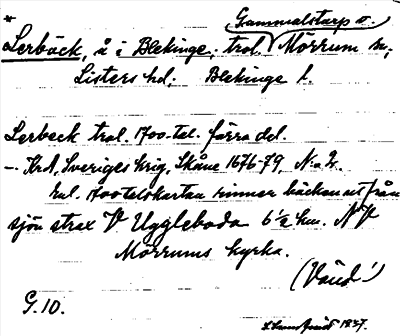 *
Gammalstorp o.
Lerbäck, å i Blekinge, trol. Mörrum sn,
Listers hd. Blekinge l.
Lerbeck trol. 1700-tal. förra del.
–. KrA, Sveriges krig, Skåne 1676-79, N:o 2.
Enl. 1700talskartan rinner bäcken ut från
sjön strax V Uggleboda 6 ½ km. NV
Mörrums kyrka.
(Vänd!)
G. 10.
1927.